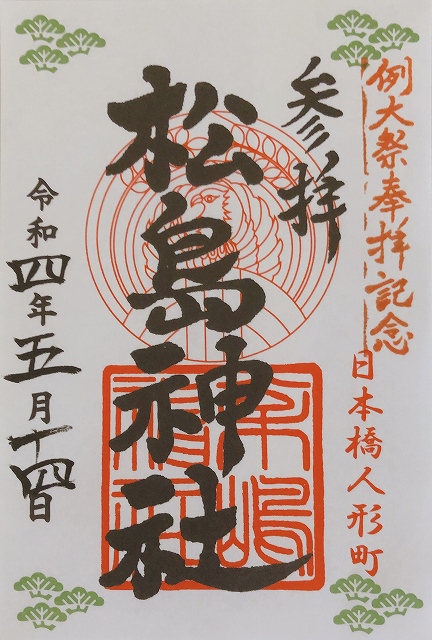 例大祭奉拝記念
日本橋人形町
参拝
松島神社
令和四年五月十四日